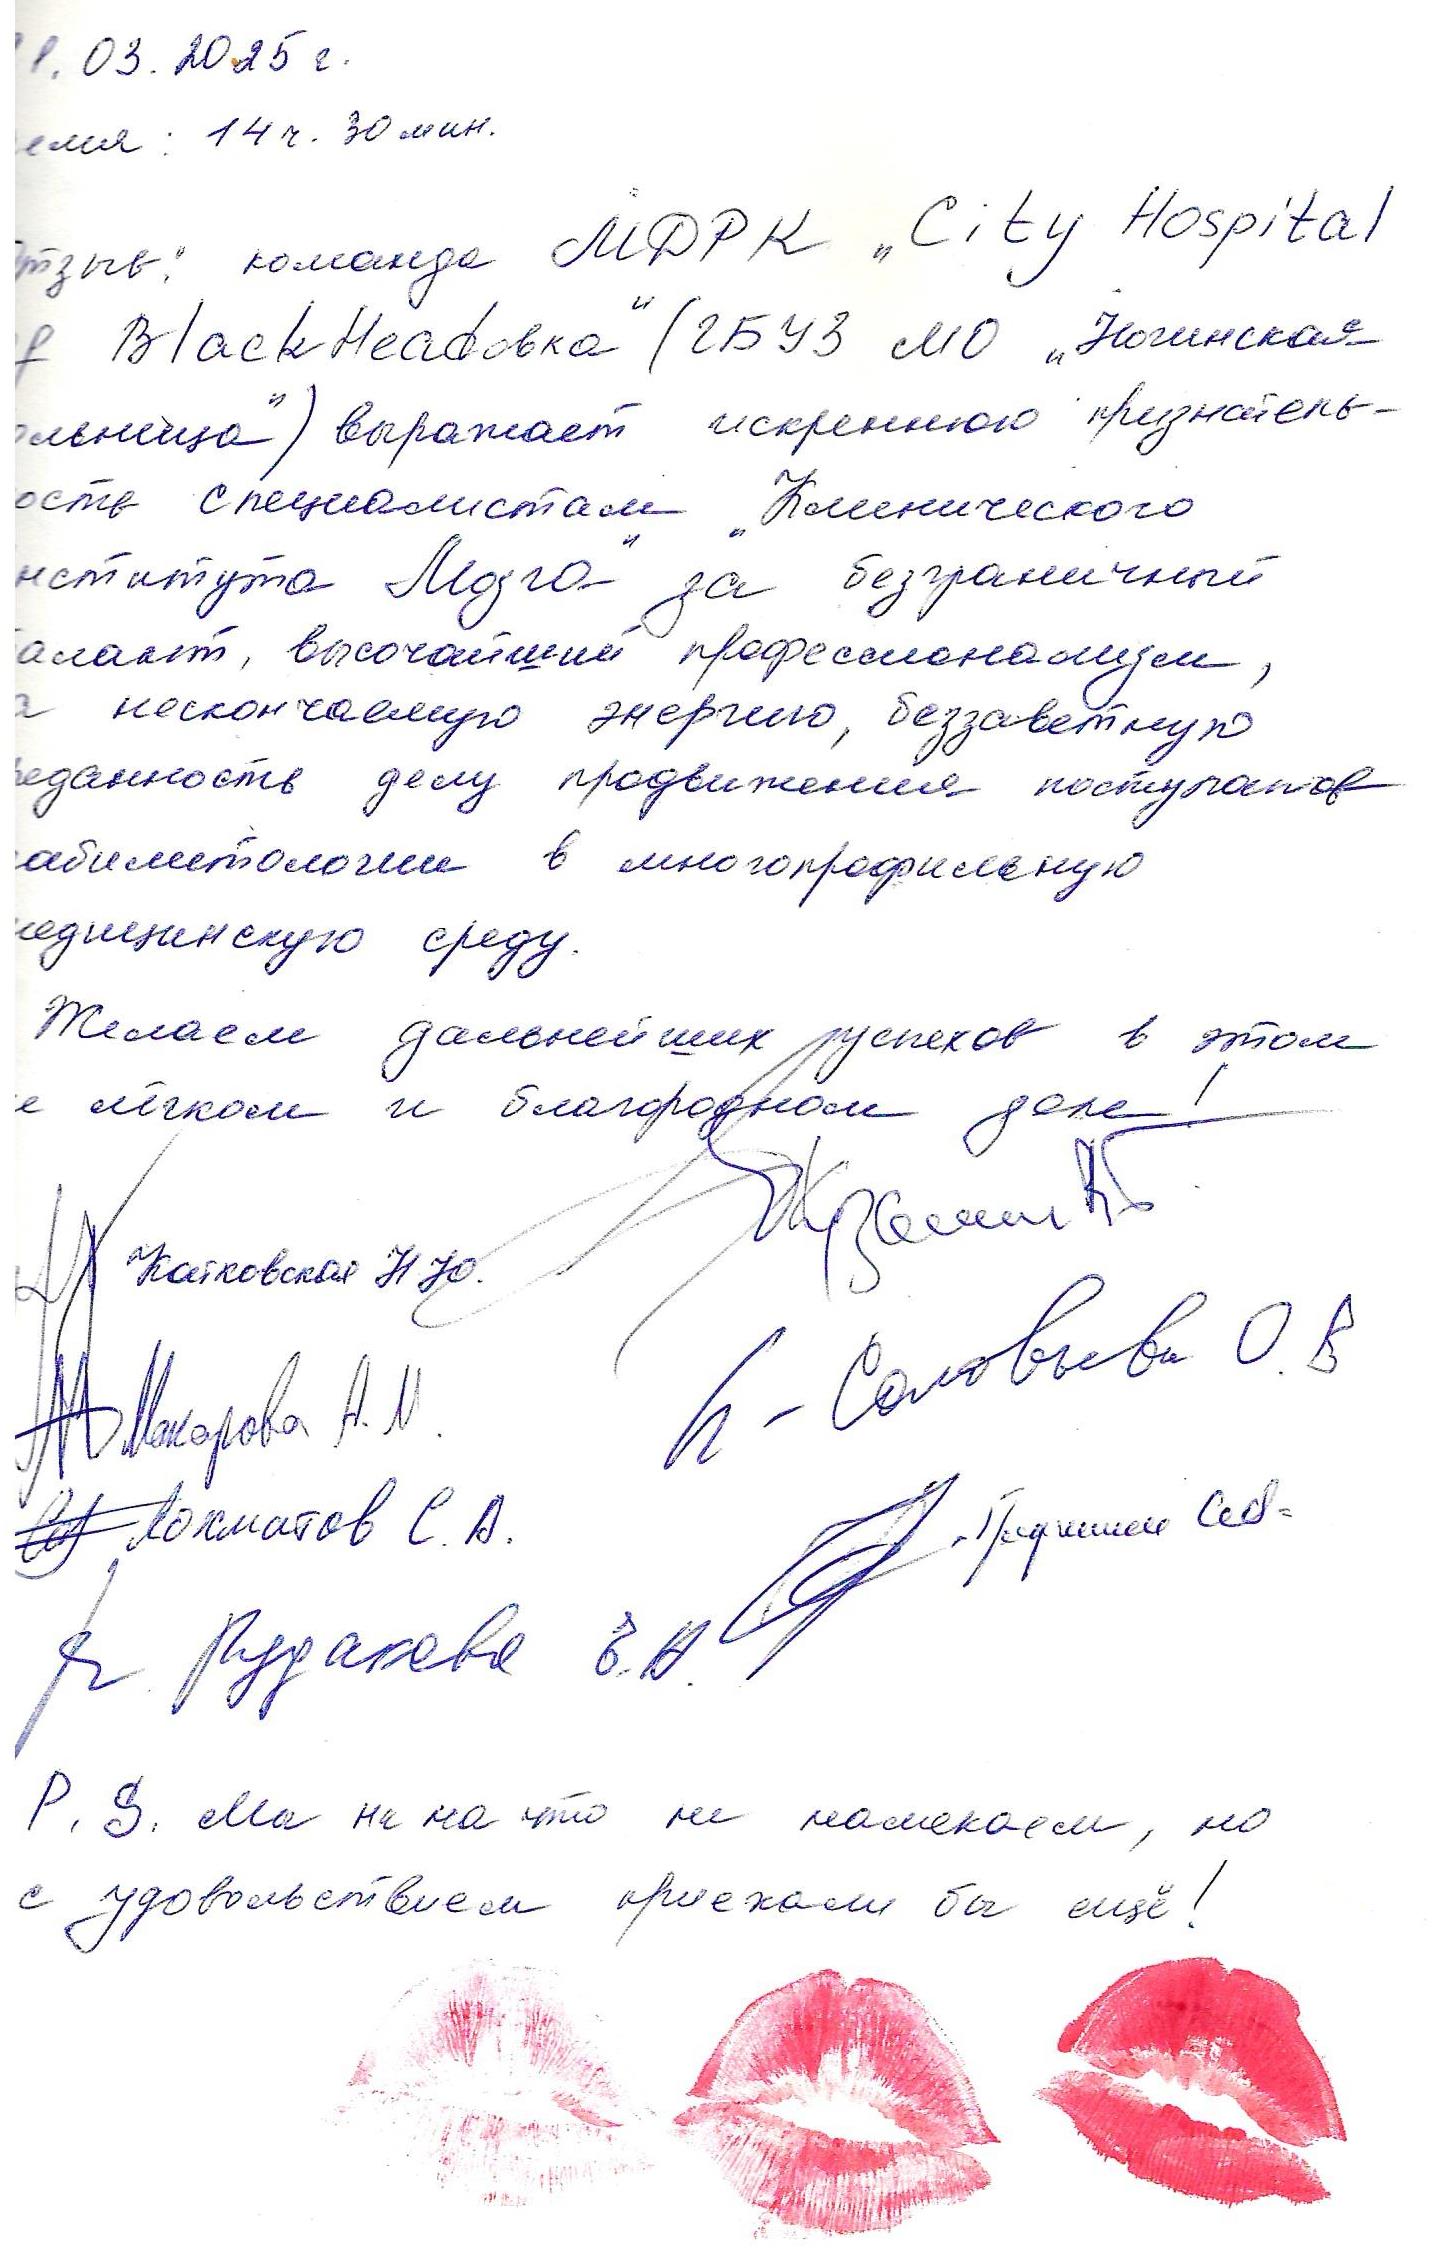 1. 03. 2025 г.
емя: 14 ч. 30 мин.
тзыв: команда МДРК „City Hospital
of BlackHeadовка" (ГБУЗ МО „Ногинская
ольница") выражает искреннюю признатель-
ость специалистам „Клинического
нститута Мозга" за безграничный
алант, высочайший профессионализм,
а нескончаемую энергию, беззаветную
реданность делу продвижения постулатов
абилитологии в многопрофильную
медицинскую среду.
Желаем дальнейших успехов в этом
е лёгком и благородном деле!
Катковская Н Ю.
Макарова А. М.
Соловьева О. В
Лохматов С. А.
Рудакова Е. Н.
P. S. Мы ни на что не намекаем, но
с удовольствием приехали бы ещё!